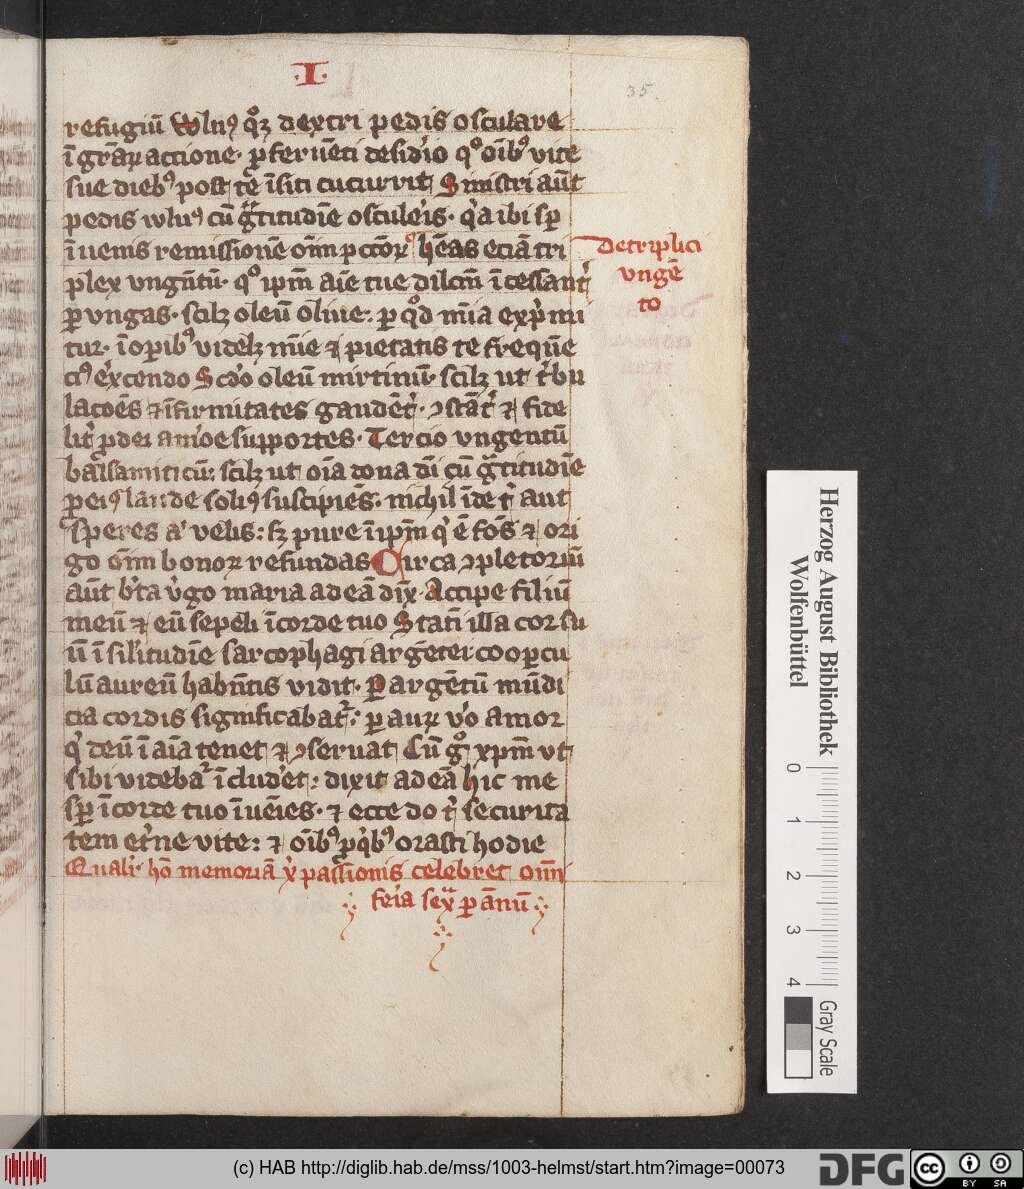 .I.
35.
refugiū wlnꝰ qͦꝫ dextri pedis osculare
ī grāꝝ accione. p̄ feruēti desid'io qͦ oīb; vite
sue dieb; post te īsiti cucurrit Sinistri aūt
pedis wlnꝰ cū gͣtitudīe osculeris. q'a ibi sꝑ
īuenis remissionē oīm pctōꝝ hēas eciā tri
plex vngntū. qͦ ip̄m aīe tue dilcm̄ īcessant'
ꝑ vngas. scilꝫ oleū oliue. ꝑ qͦd m̄ia exp'mi
tur. ī oꝑib; videlꝫ mīe ⁊ pietatis te freqūē
ciꝰ ex'cendo Scd'o oleū mirtinū. scilꝫ ut t'bu
lacōes ⁊ īfirmitates gaudēt'. ꝯstāt' ⁊ fide
lit' ꝓ dei amōe supportes. Tercio vngentū
balsamiticū: scilꝫ ut oīa dona dī cū gͣtitudīe
ꝑ eiꝰ laude soliꝰ suscipiēs. nichil īde t' aut
speres a' velis: sꝫ pure ī ip̄m q' ē fōs ⁊ ori
go oīm bonoꝝ refundas Circa ꝯpletoriū
aūt b'ta v'go maria ad eā dix. Accipe filiū
meū ⁊ eū sepeli ī corde tuo Statī illa cor su
ū ī silitudīe sarcophagi argētei cooꝑcu
lū aureū habn̄tis vidit. ꝑ argētū mūdi
cia cordis significābat'. ꝑ auꝝ vo amor
q' deū ī aīa tenet ⁊ ꝯseruat Cū gͦ xp̄m vt
sibi videbat' īcludet: dixit ad eā hic me
sꝑ ī corde tuo īuēies. ⁊ ecce do t' securita
tem et'ne vite: ⁊ oīb; ꝓ q'b; orasti hodie
Qualit' hō memoriā x' passionis celebret omī
fer'ia sexͣ ꝑ ānū
De triplici
vngē
to
Herzog August Bibliothek
Wolfenbüttel
0 1 2 3 4
Gray Scale
(c) HAB http://diglib.hab.de/mss/1003-helmst/start.htm?image=00073
DFG
cc BY SA